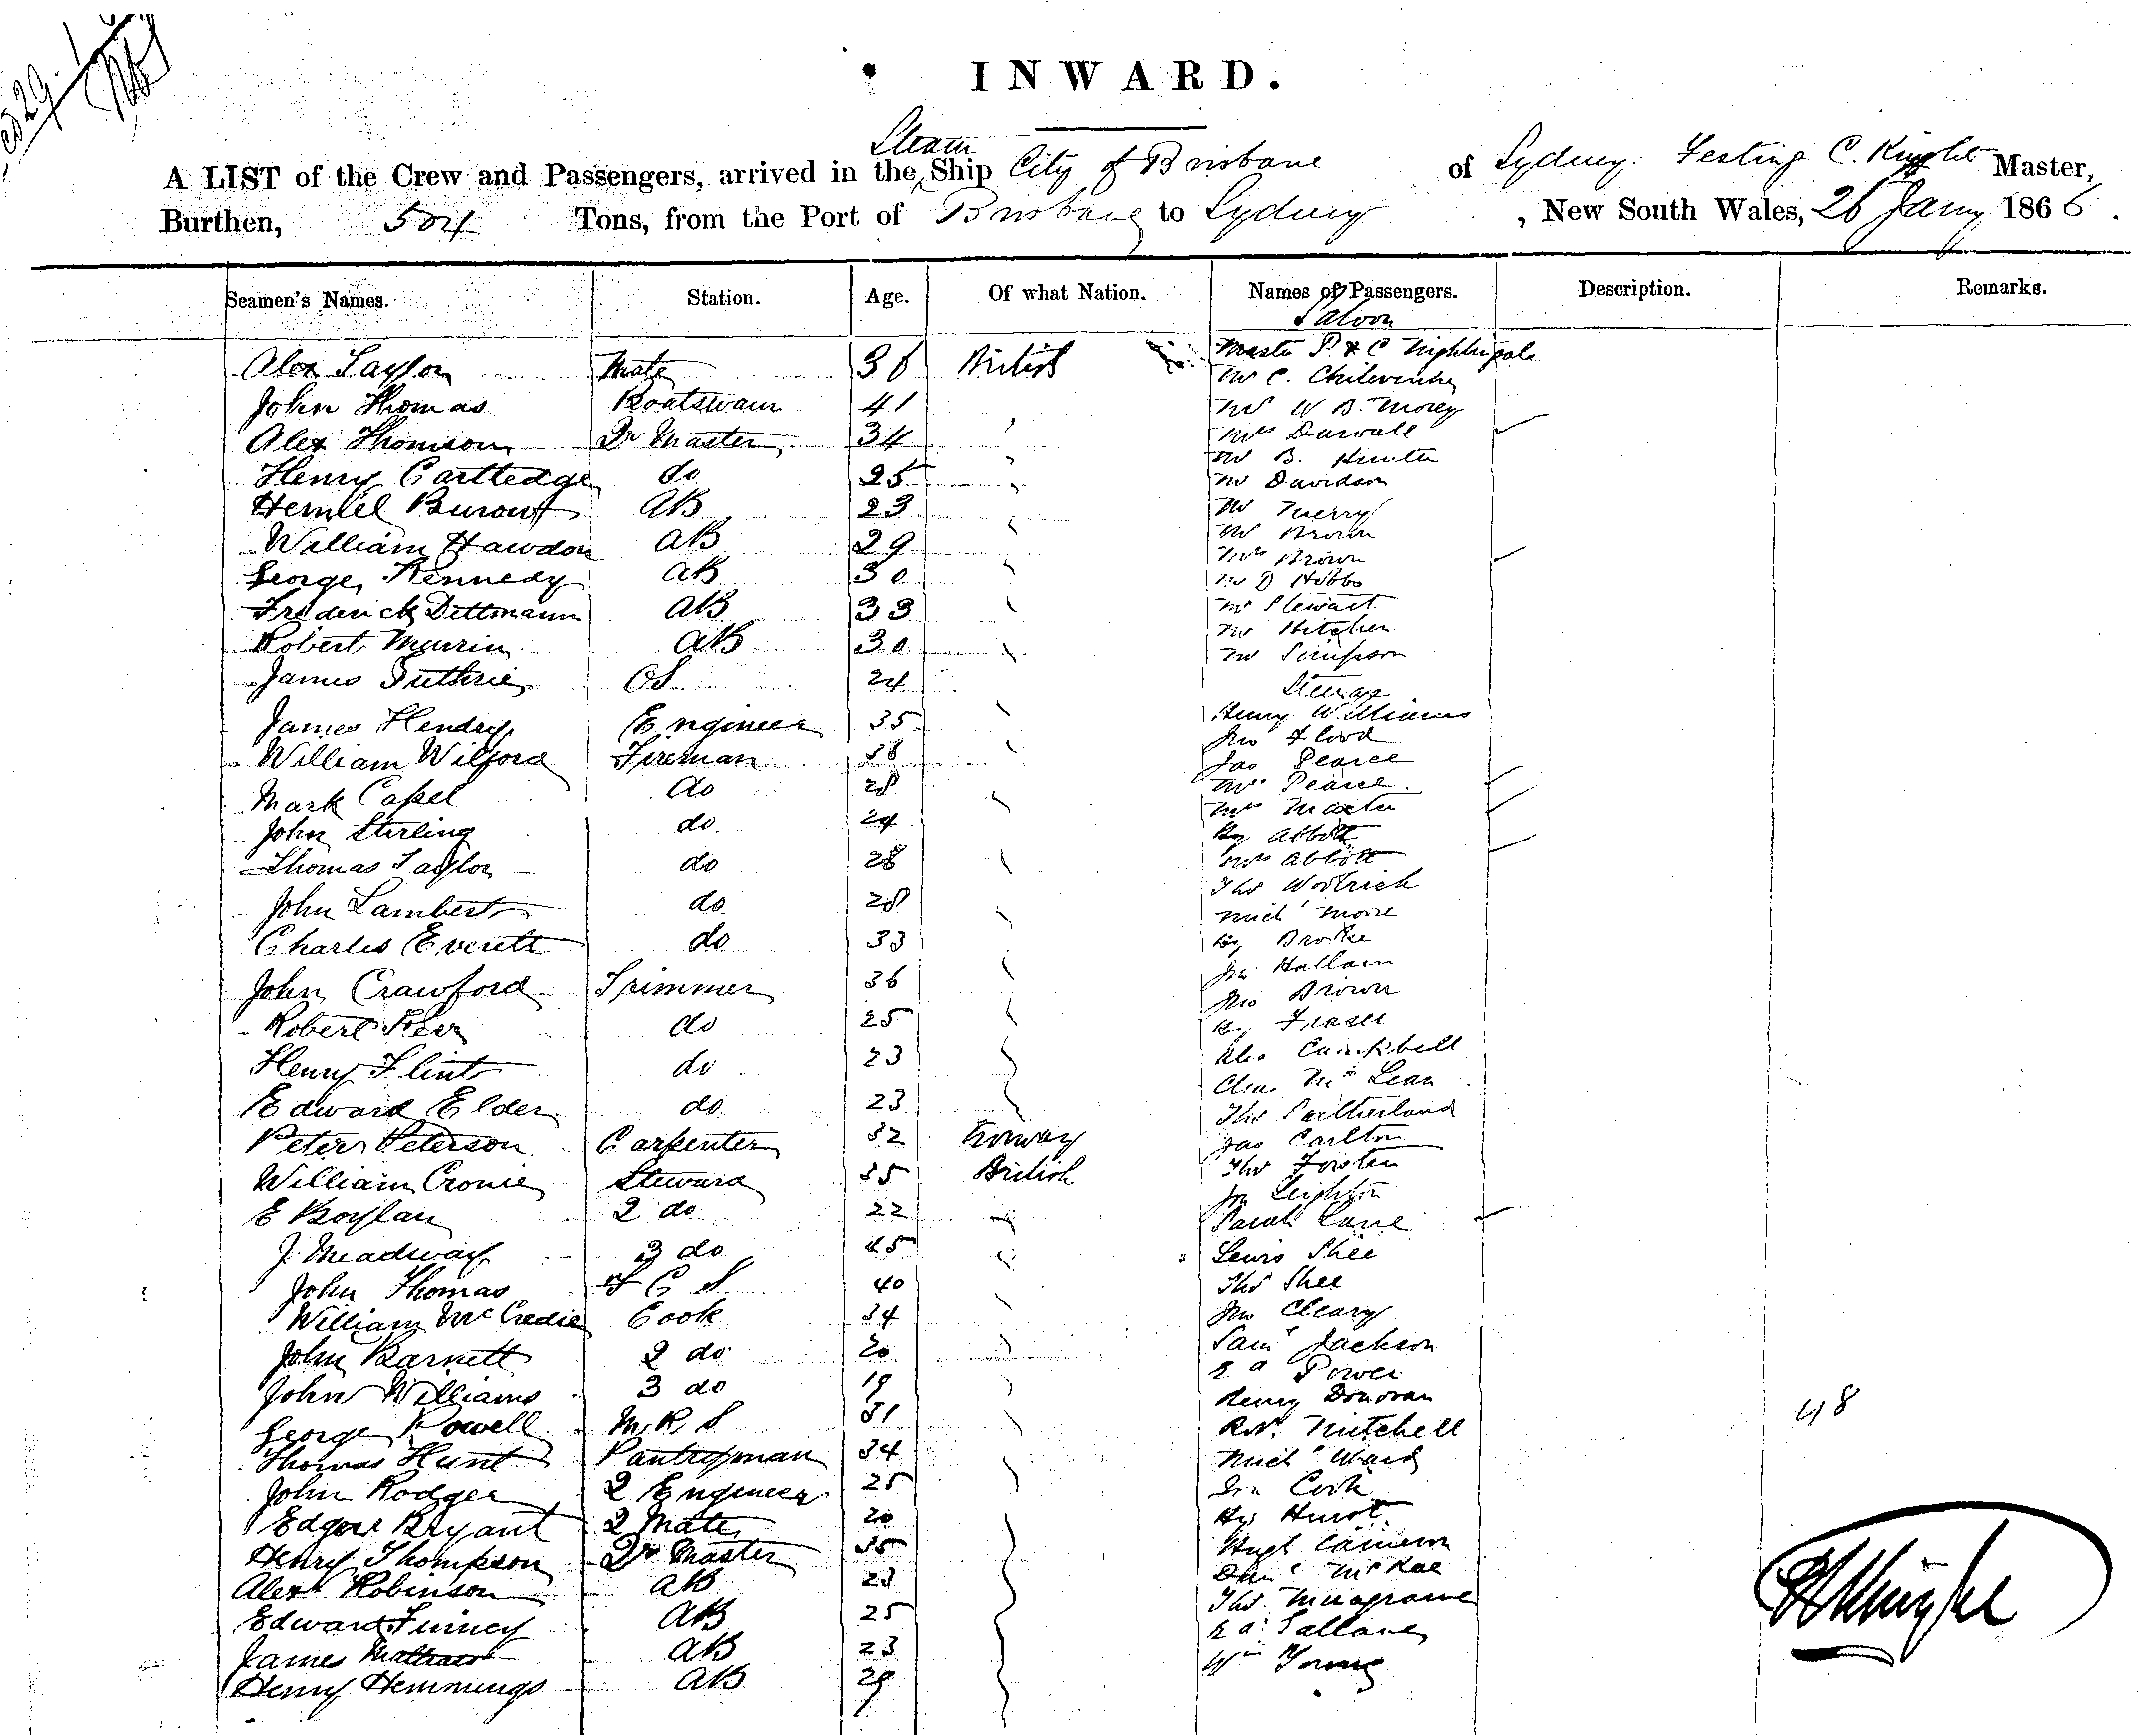 INWARD.
Steam
A LIST of the Crew and Passengers, arrived in the Ship City of Brisbane of Sydney. C. Knight Master,
Burthen, 504 Tons, from the Port of Brisbane to Sydney, New South Wales, 26 Jany 1866.
Seamen's Names. Station. Age. Of what Nation. Names of Passengers. Description. Remarks.
Saloon
Alex Taylor Mate 36 British
John Thomas Boatswain 41 Mr W B. Morey
Alex Thomson Qr Master 34 Mrs Darvall
Mr B. Hunter
Henry Cartledge do 25 Mr Davidson
AB 23 Mr
Mr Brown
William Hawdon AB 29 Mrs Brown
George Kennedy AB 30 Mr D Hobbs
Frederick Dettmann AB 33 Mr Stewart
Robert Murrin AB 30 Mr Hitchen
Mr Simpson
James Guthrie OS 24 Steerage
James Hendry Engineer 35 Henry Williams
Jno Flood
William Wilford Fireman 38 Jas Pearce
Mark Capel do 28 Mrs Pearce.
John Stirling do 24 Hy Abbott
Thomas Taylor do 28 Mrs Abbott
John Lambert do 28 Thos
Michl Moore
Charles Everett do 33 Hy
Hallam
John Crawford Trimmer 36 Jno Brown
Robert do 25 Hy Fraser
Henry Flint do 23 Campbell
Chas McLean
Edward Elder do 23 Thos Sutherland
Peter Peterson Carpenter 32 Norway Jas Carlton
William Cronie Steward 35 British Thos Forster
Jno Leighton
E Boylan 2 do 22 Sarah Lane
J. Meadway 3 do 45 Lewis Shee
John Thomas F C S 40 Thos Shee
William McCredie Cook 34 Jno Cleary
John Barnett 2 do 20 Saml Jackson
Power
John Williams 3 do 19 Henry Donovan
George Powell M.R S 31 Robt. Mitchell
48
Thomas Hunt Pantryman 34 Michl Ward
John Rodger 2 Engineer 25 Cook
Edgar Bryant 2 Mate 20 Hy Hurst
Henry Thompson Qr Master 35 Hugh Cameron
Alex Robinson AB 23 McRae
Thos. Musgrave
Edward Turney AB 25
James AB 23 Wm Young
Henry Hemmings AB 29